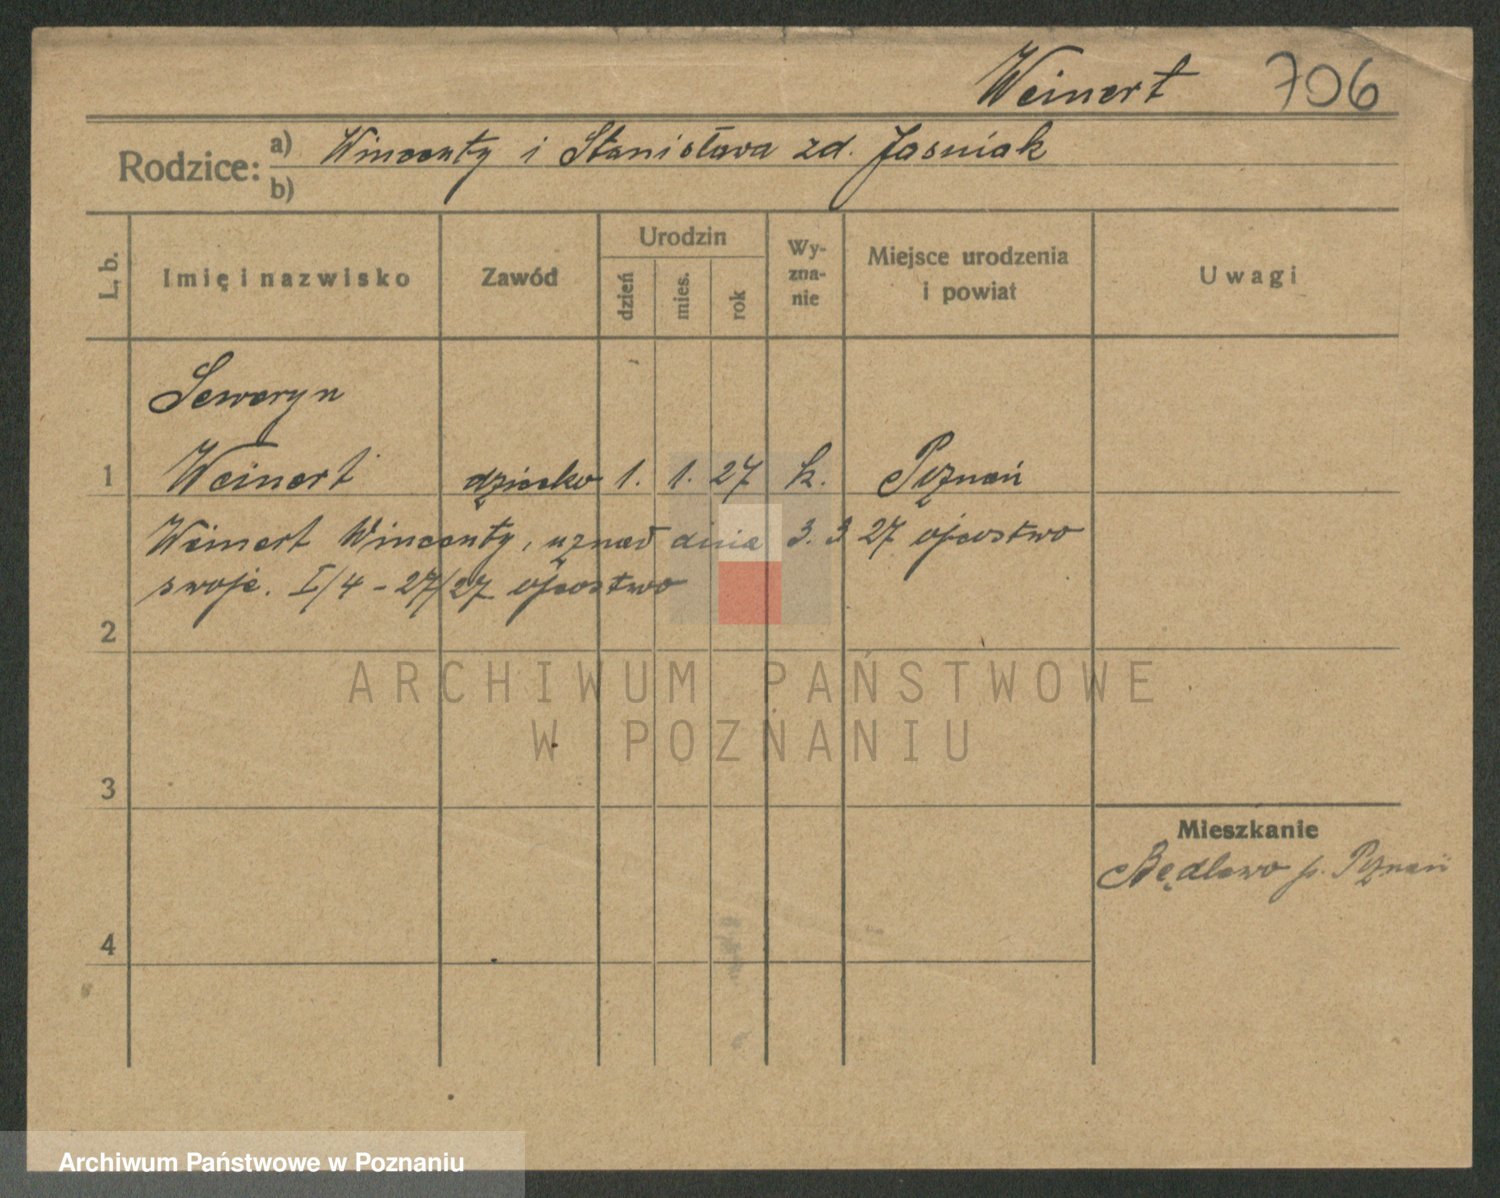 Weinert 706
Rodzice: a) Wincenty i Stanisława zd. Jasniak
b)
L. b. Imię i nazwisko Zawód Urodzin dzień mies. rok Wy-zna-nie Miejsce urodzenia i powiat Uwagi
Seweryn
1 Weinert dziecko 1. 1. 27 k. Poznań
Weinert Wincenty, uznał dnia 3. 3 27 ojcostwo
swoje. I/4 - 27/27 ojcostwo
2
ARCHIWUM PAŃSTWOWE
W POZNANIU
3
Mieszkanie
Będlewo p. Poznań
4
Archiwum Państwowe w Poznaniu